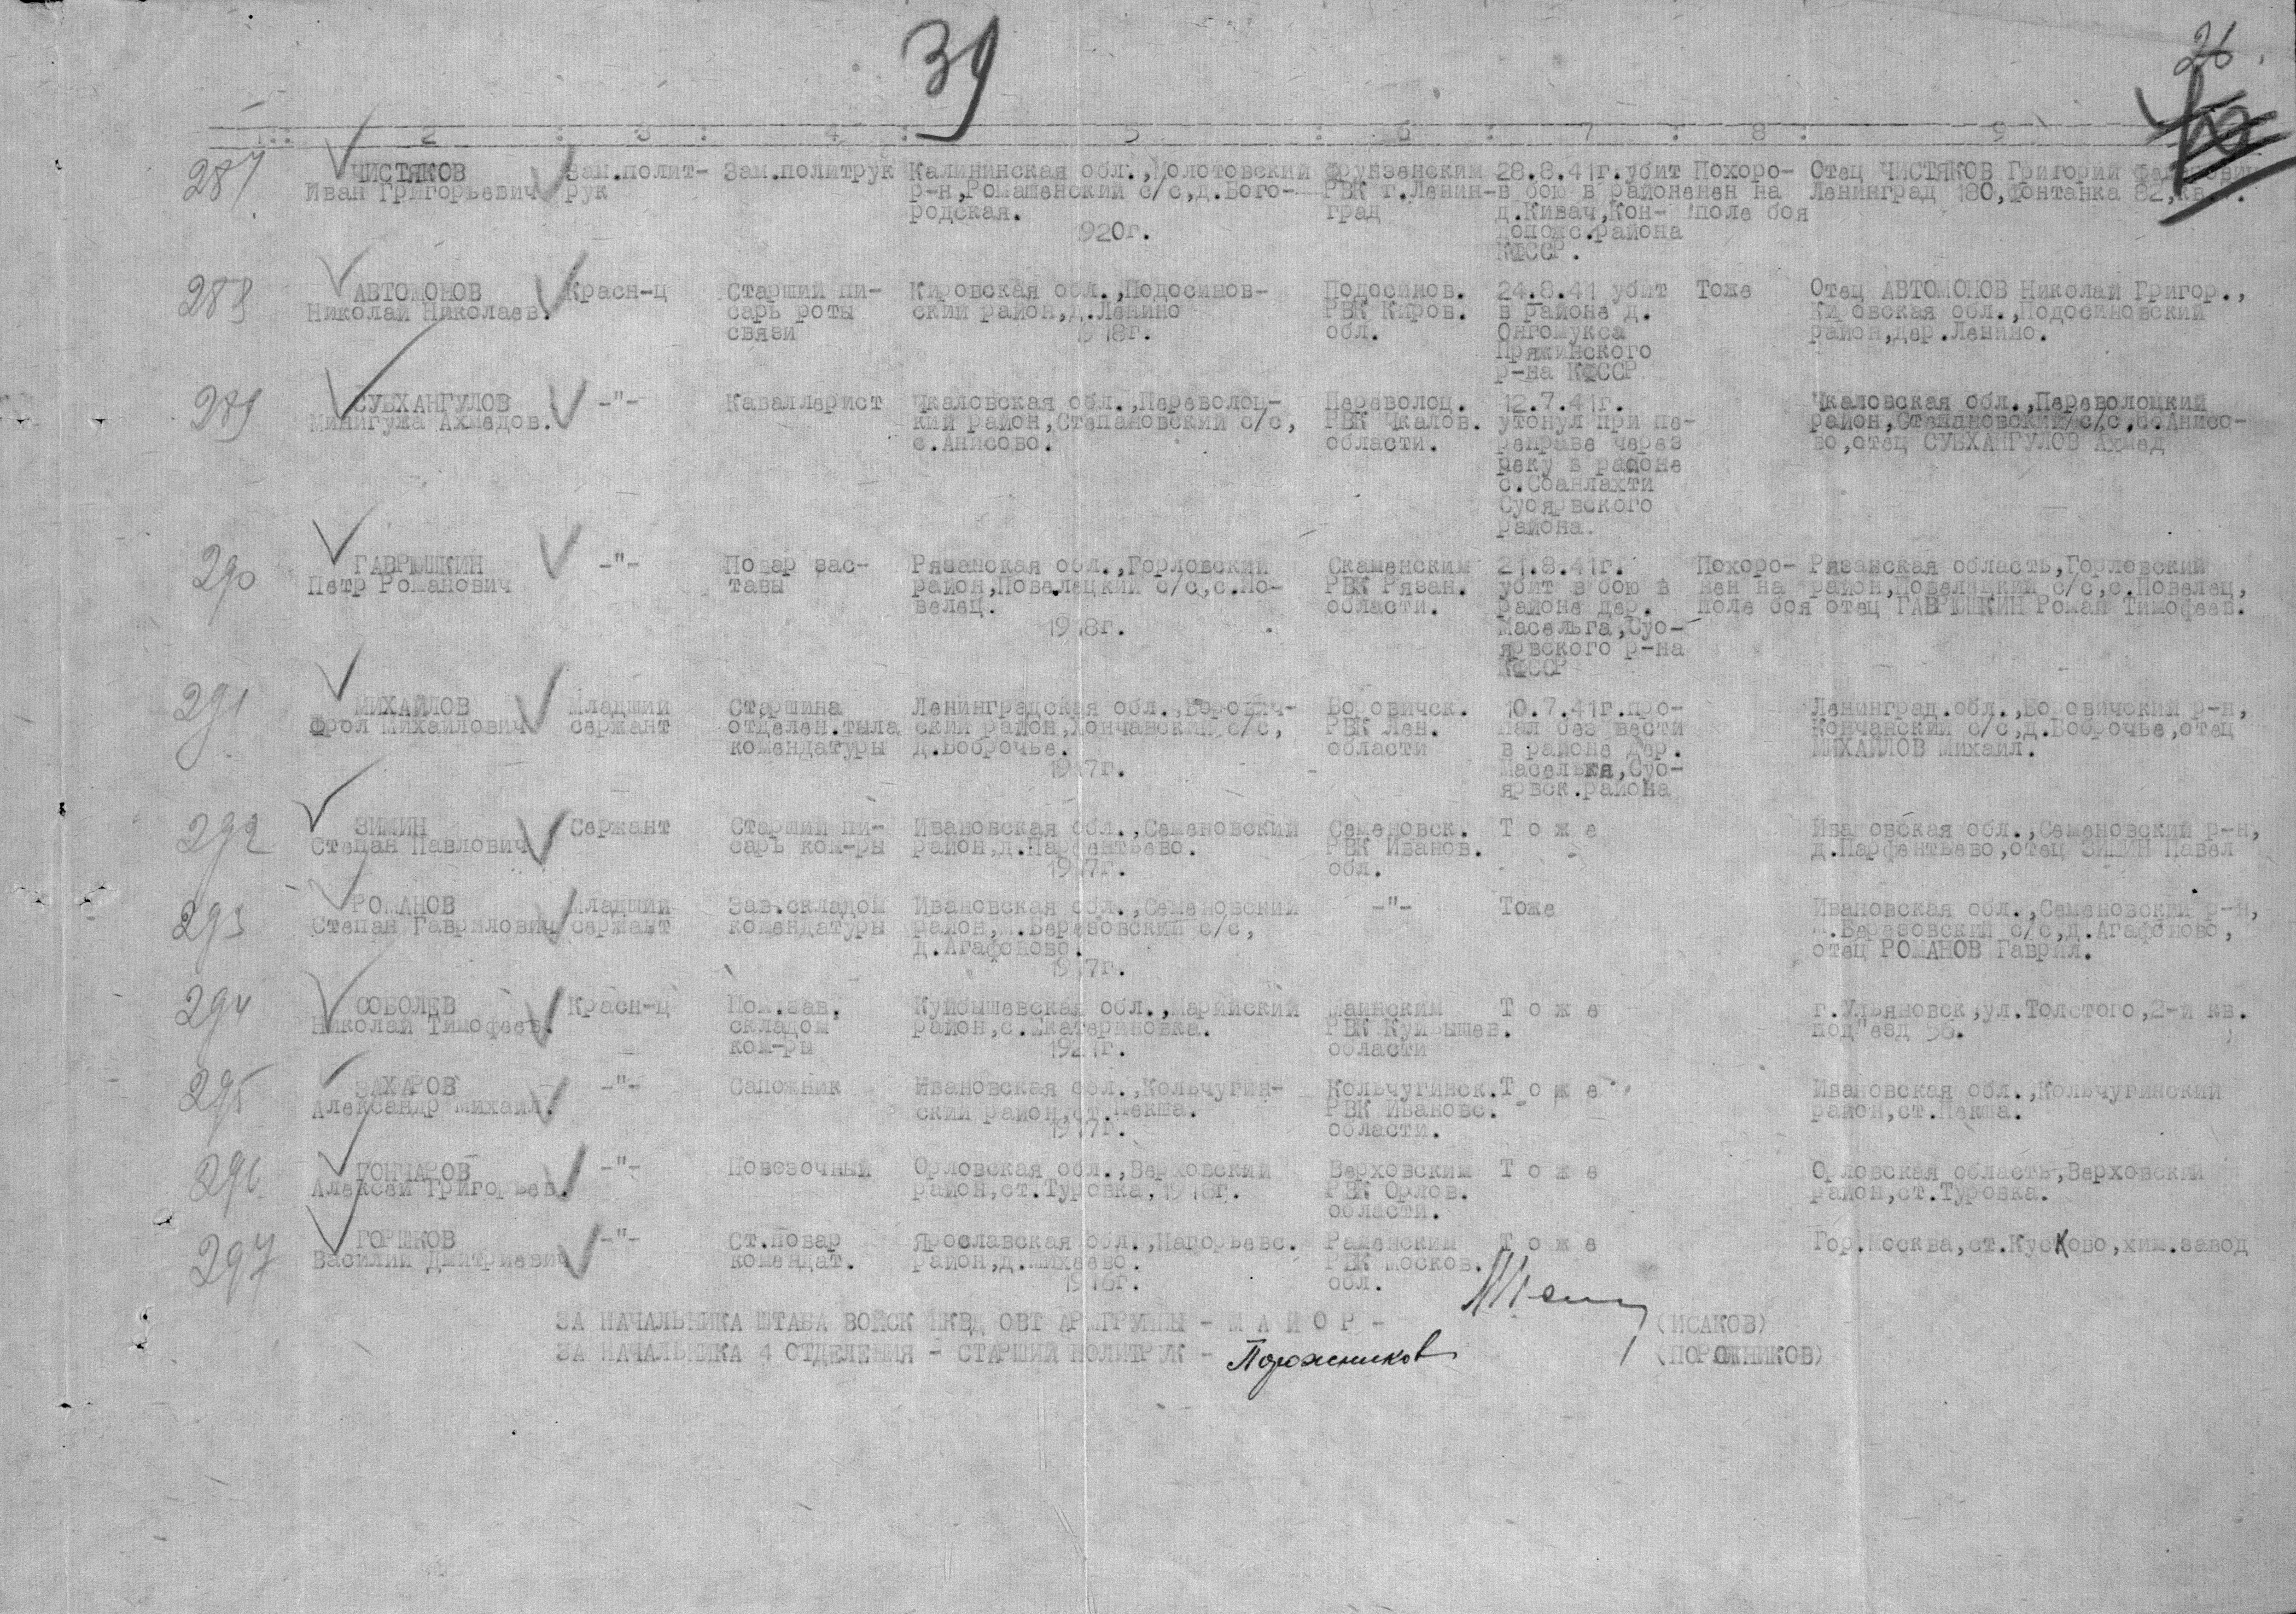 39
26.
1 : 2 : 3 : 4 : 5 : 6 : 7 : 8 : 9
287 ЧИСТЯКОВ Зам.полит- Зам.политрук Калининская обл.,Молотовский Фрунзенским 28.8.41г.убит Похоро- Отец ЧИСТЯКОВ Григорий
Иван Григорьевич рук р-н,Ромашенский с/с,д.Бого- РВК г.Ленин- в бою в районе нен на Ленинград 180,Фонтанка 82,кв.
родская. град д.Кивач,Кон- поле боя
1920г. допожс.района
КФССР.
288 АВТОМОНОВ Красн-ц Старший пи- Кировская обл.,Подосинов- Подосинов. 24.8.41 убит Тоже Отец АВТОМОНОВ Николай Григор.,
Николай Николаев. сарь роты ский район,д.Ленино РВК Киров. в районе д. Кировская обл.,Подосиновский
связи 1918г. обл. Онгомукса район,дер.Ленино.
Пряжинского
р-на КФССР
289 СУБХАНГУЛОВ -"- Каваллерист Чкаловская обл.,Переволоц- Переволоц. 12.7.41г. Чкаловская обл.,Переволоцкий
Минигужа Ахмедов. кий район,Степановский с/с, РВК Чкалов. утонул при пе- район,Степановский с/с,с.Анисо-
с.Анисово. области. реправе через во,отец СУБХАНГУЛОВ Ахмед
реку в районе
с.Соанлахти
Суоярвского
района.
290 ГАВРЮШКИН -"- Повар зас- Рязанская обл.,Горловский Скаменским 21.8.41г. Похоро- Рязанская область,Горловский
Петр Романович тавы район,Повелецкий с/с,с.По- РВК Рязан. убит в бою в нен на район,Повелецкий с/с,с.Повелец,
велец. области. районе дер. поле боя отец ГАВРЮШКИН Роман Тимофеев.
1918г. Масельга,Суо-
ярвского р-на
КФССР
291 МИХАЙЛОВ Младший Старшина Ленинградская обл.,Борович- Боровичск. 10.7.41г.про- Ленинград.обл.,Боровичский р-н,
Фрол Михайлович сержант отделен.тыла ский район,Кончанский с/с, РВК Лен. пал без вести Кончанский с/с,д.Боброчье,отец
комендатуры д.Боброчье. области в районе дер. МИХАЙЛОВ Михаил.
1917г. Масельга,Суо-
ярвск.района
292 ЗИМИН Сержант Старший пи- Ивановская обл.,Семеновский Семеновск. Т о ж е Ивановская обл.,Семеновский р-н,
Степан Павлович сарь ком-ры район,д.Парфентьево. РВК Иванов. д.Парфентьево,отец ЗИМИН Павел
1917г. обл.
293 РОМАНОВ Младший Зав.складом Ивановская обл.,Семеновский -"- Тоже Ивановская обл.,Семеновский р-н,
Степан Гаврилович сержант комендатуры район,М.Березовский с/с, М.Березовский с/с,д.Агафоново,
д.Агафоново. отец РОМАНОВ Гаврил.
1917г.
294 СОБОЛЕВ Красн-ц Пом.зав. Куйбышевская обл.,Марийский Маинским Т о ж е г.Ульяновск,ул.Толстого,2-й кв.
Николай Тимофеев. складом район,с.Екатериновка. РВК Куйбышев. под"езд 56.
ком-ры 1921г. области
295 ЗАХАРОВ -"- Сапожник Ивановская обл.,Кольчугин- Кольчугинск. Т о ж е Ивановская обл.,Кольчугинский
Александр Михаил. ский район,ст.Пекша. РВК Ивановс. район,ст.Пекша.
1917г. области.
296 ГОНЧАРОВ -"- Повозочный Орловская обл.,Верховский Верховским Т о ж е Орловская область,Верховский
Алексей Григорьев. район,ст.Туровка,1918г. РВК Орлов. район,ст.Туровка.
области.
297 ГОРШКОВ -"- Ст.повар Ярославская обл.,Нагорьевс. Раменским Т о ж е Гор.Москва,ст.Кусково,хим.завод
Василий Дмитриевич комендат. район,д.Михеево. РВК Москов.
1916г. обл.
ЗА НАЧАЛЬНИКА ШТАБА ВОЙСК НКВД ОВТ АРМГРУППЫ - М А Й О Р - (ИСАКОВ)
ЗА НАЧАЛЬНИКА 4 ОТДЕЛЕНИЯ - СТАРШИЙ ПОЛИТРУК - Порожников (ПОРОЖНИКОВ)